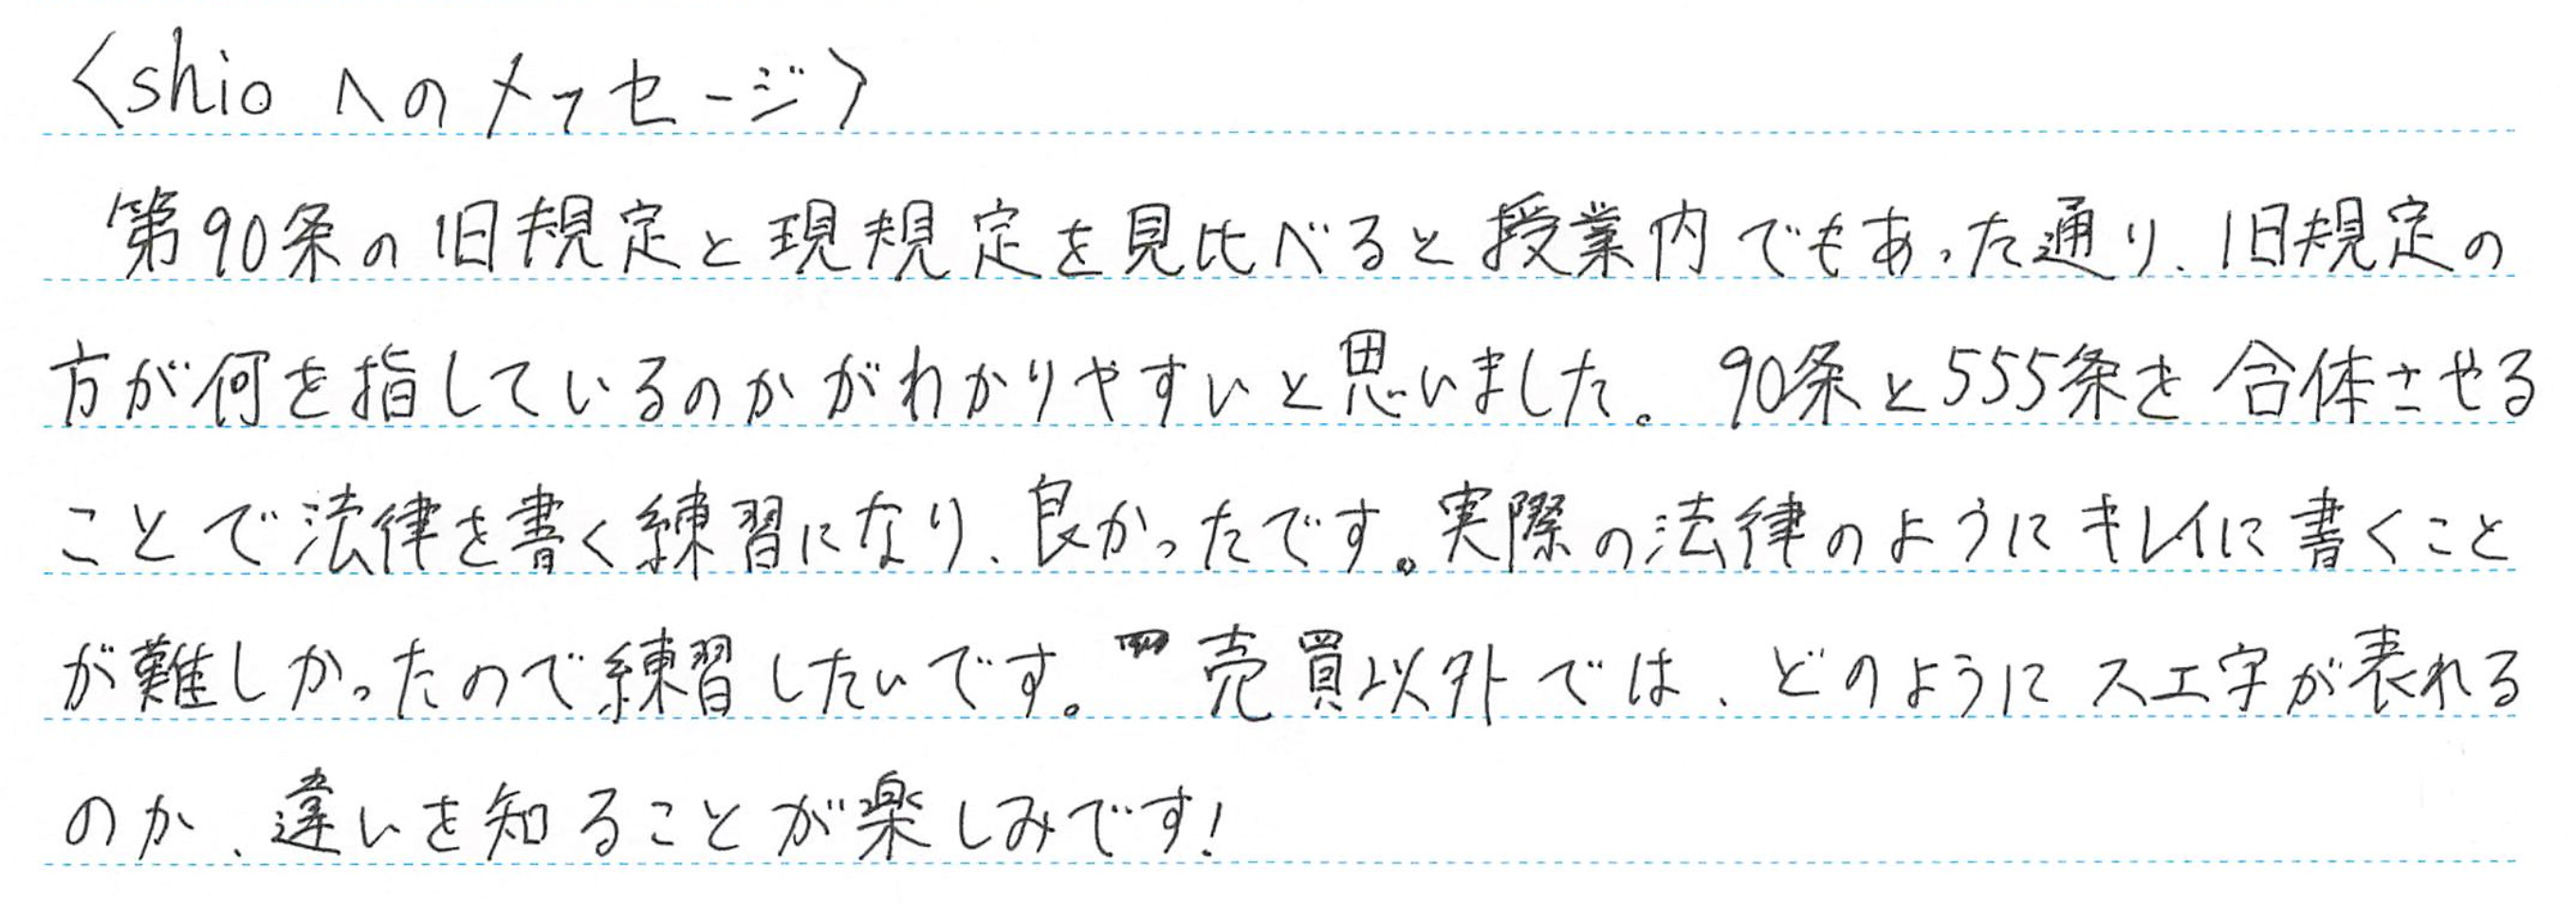 〈shioへのメッセージ〉
第90条の旧規定と現規定を見比べると授業内でもあった通り、旧規定の
方が何を指しているのかがわかりやすいと思いました。90条と555条を合体させる
ことで法律を書く練習になり、良かったです。実際の法律のようにキレイに書くこと
が難しかったので練習したいです。売買以外では、どのようにスエ字が表れる
のか、違いを知ることが楽しみです!